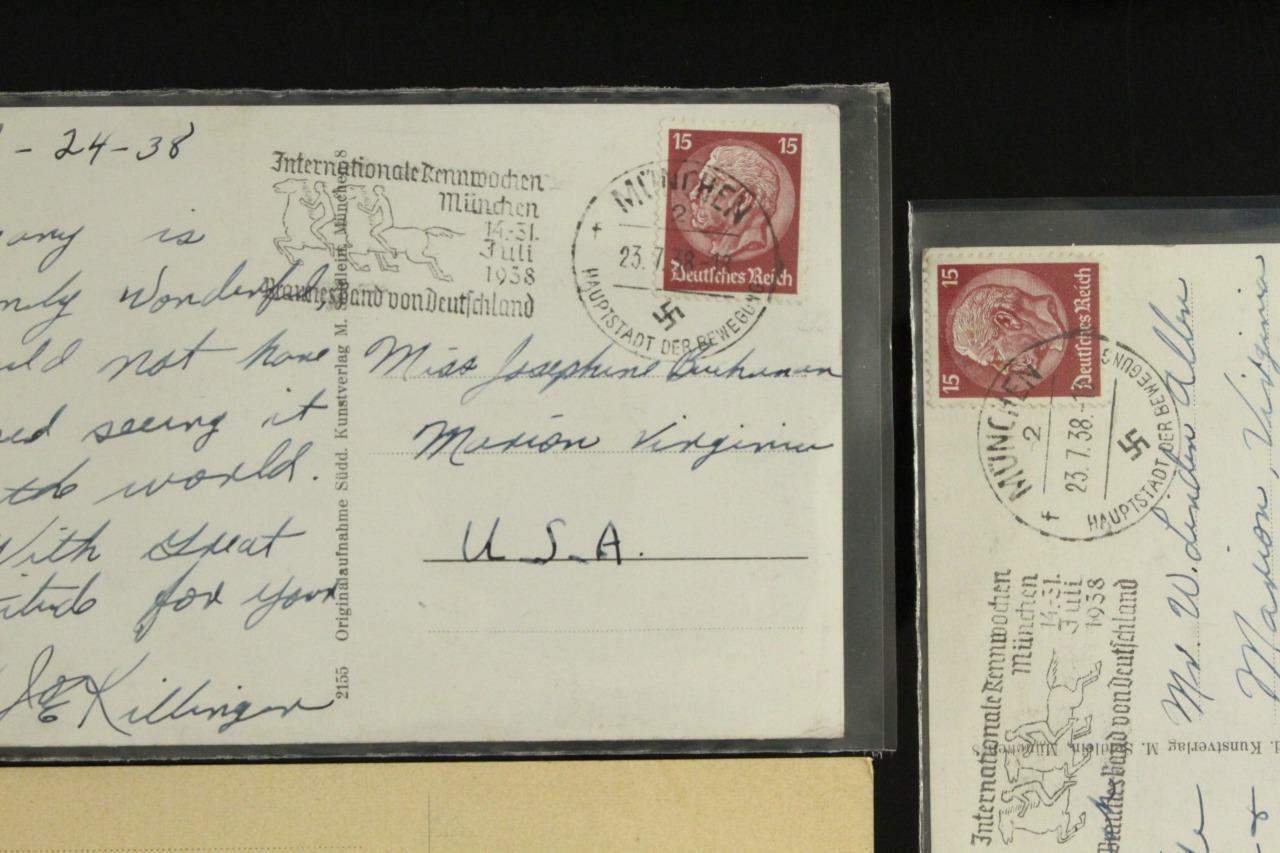 - 24-38
any is
Wonderful,
not have
seeing it
world.
With great
for your
JE Killinger
2155 Originalaufnahme Südd. Kunstverlag M. Seidlein, München 8
Internationale Rennwochen
München
14.-31.
Juli
1938
Braunes Band von Deutschland
MÜNCHEN
2
23.7.38.-18
HAUPTSTADT DER BEWEGUNG
15 15
Deutsches Reich
Miss Josephine Buchanan
Marion Virginia
U.S.A.
15 15
Deutsches Reich
MÜNCHEN
2
23.7.38.-1
HAUPTSTADT DER BEWEGUNG
Internationale Rennwochen
München
14.-31.
Juli
1938
Braunes Band von Deutschland
Mr. W. Linden Allen
Marion, Virginia
d. Kunstverlag M. Seidlein, München 8